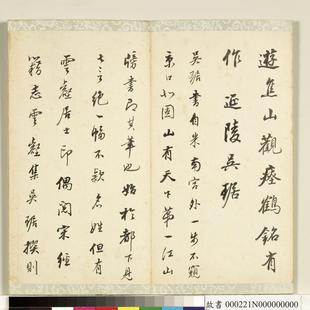 遊焦山觀瘞鶴銘有
作 延陵吳琚
吳琚書自米南宮外一步不窺
京口北固山有天下第一江山
牓書即其筆也始於都下見
七言絕一幅不款名姓但有
雲壑居士印偶閱宋經
籍志雲壑集吳琚撰則
故書 000221N000000000